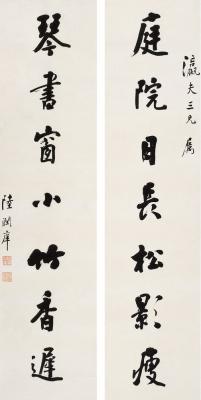 瀛夫三兄屬
庭院日長松影瘦
琴書窗小竹香遲
陸潤庠